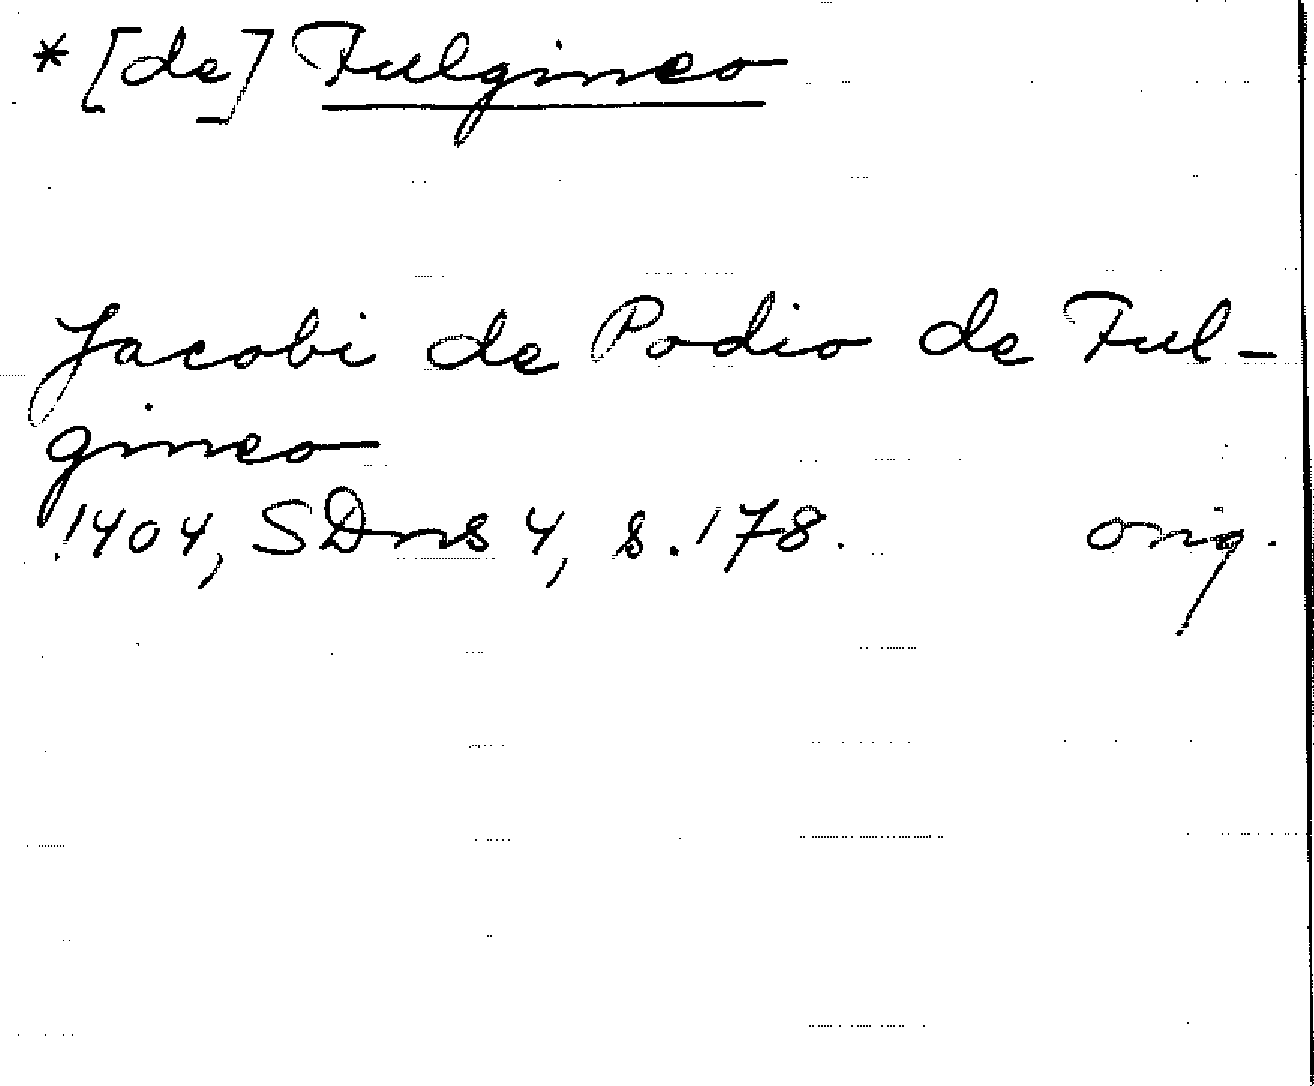 * [de] Fulgineo
Jacobi de Podio de Ful-
gineo
1404, SDns 4, s. 178. orig.